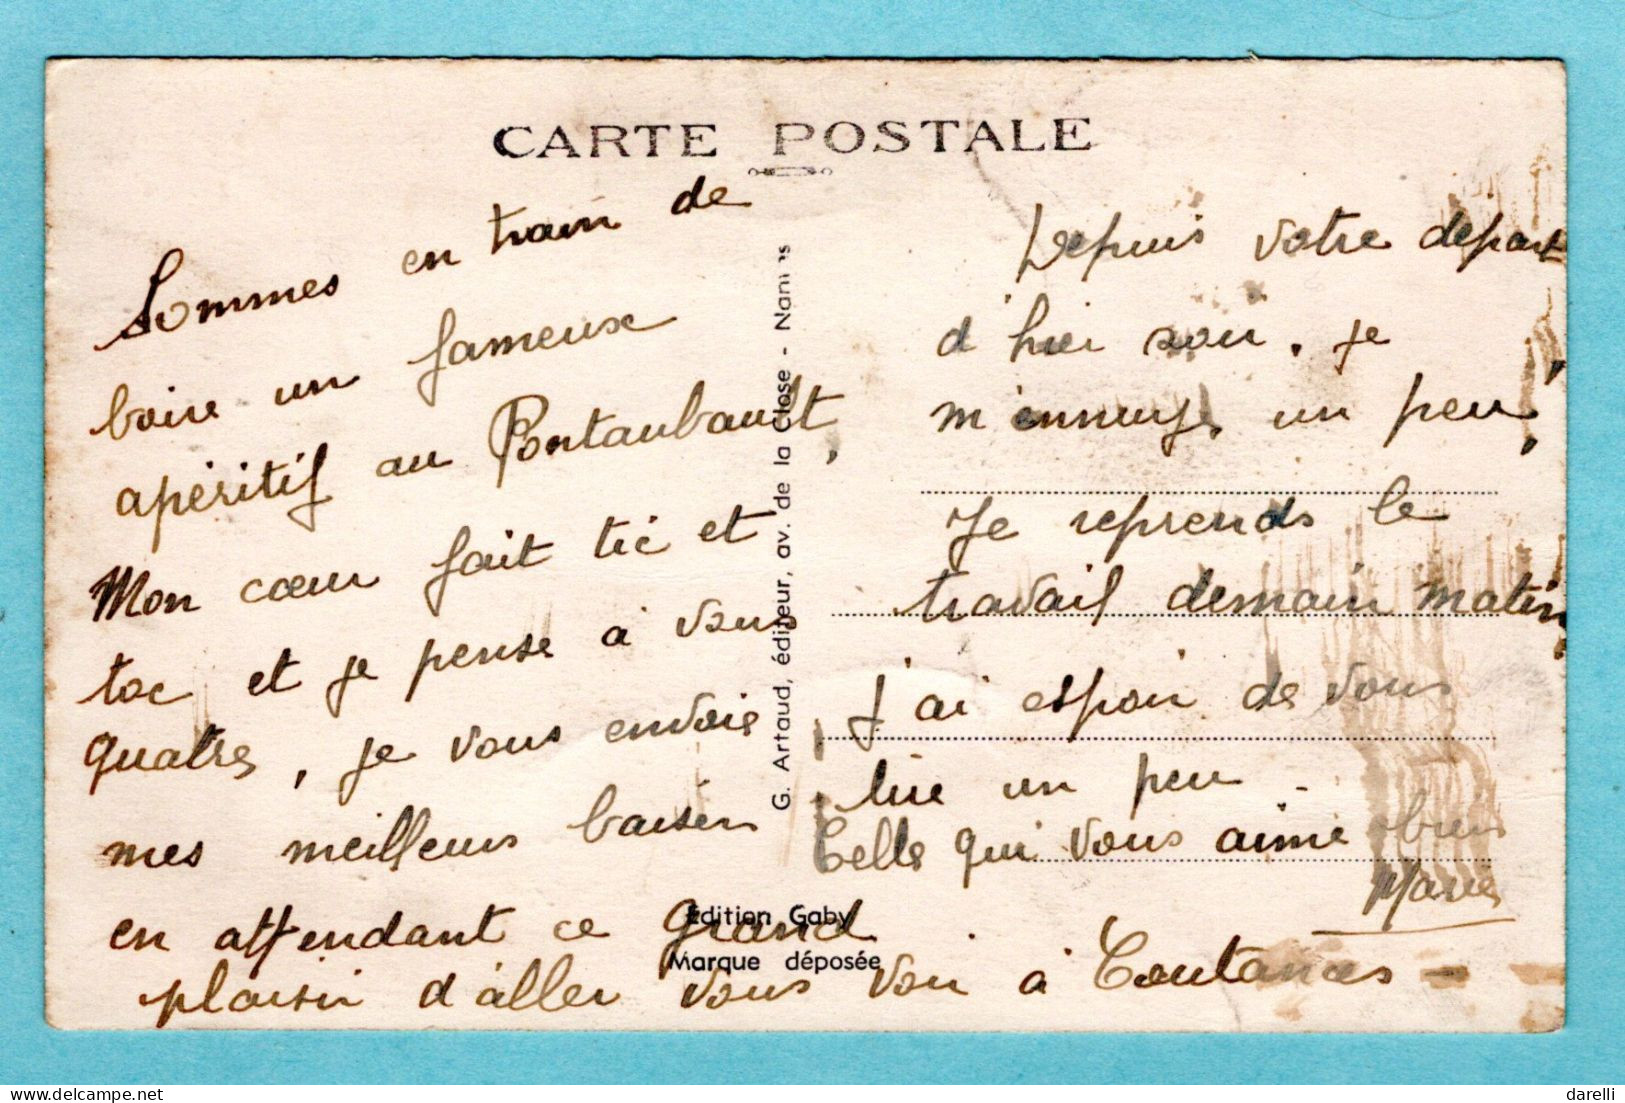 CARTE POSTALE
Sommes en train de
boire un fameux
apéritif au Pontaubault,
Mon cœur fait tic et
toc et je pense à vous
quatres, je vous envoie
mes meilleurs baisers
en attendant ce grand
plaisir d'aller vous voir à Coutances -
Depuis votre départ
d'hier soir, je
m'ennuye un peu,
Je reprends le
travail demain matin,
J'ai espoir de vous
lire un peu -
Celle qui vous aime bien
Marie
G. Artaud, éditeur, av. de la Close - Nantes
Edition Gaby
Marque déposée
darelli